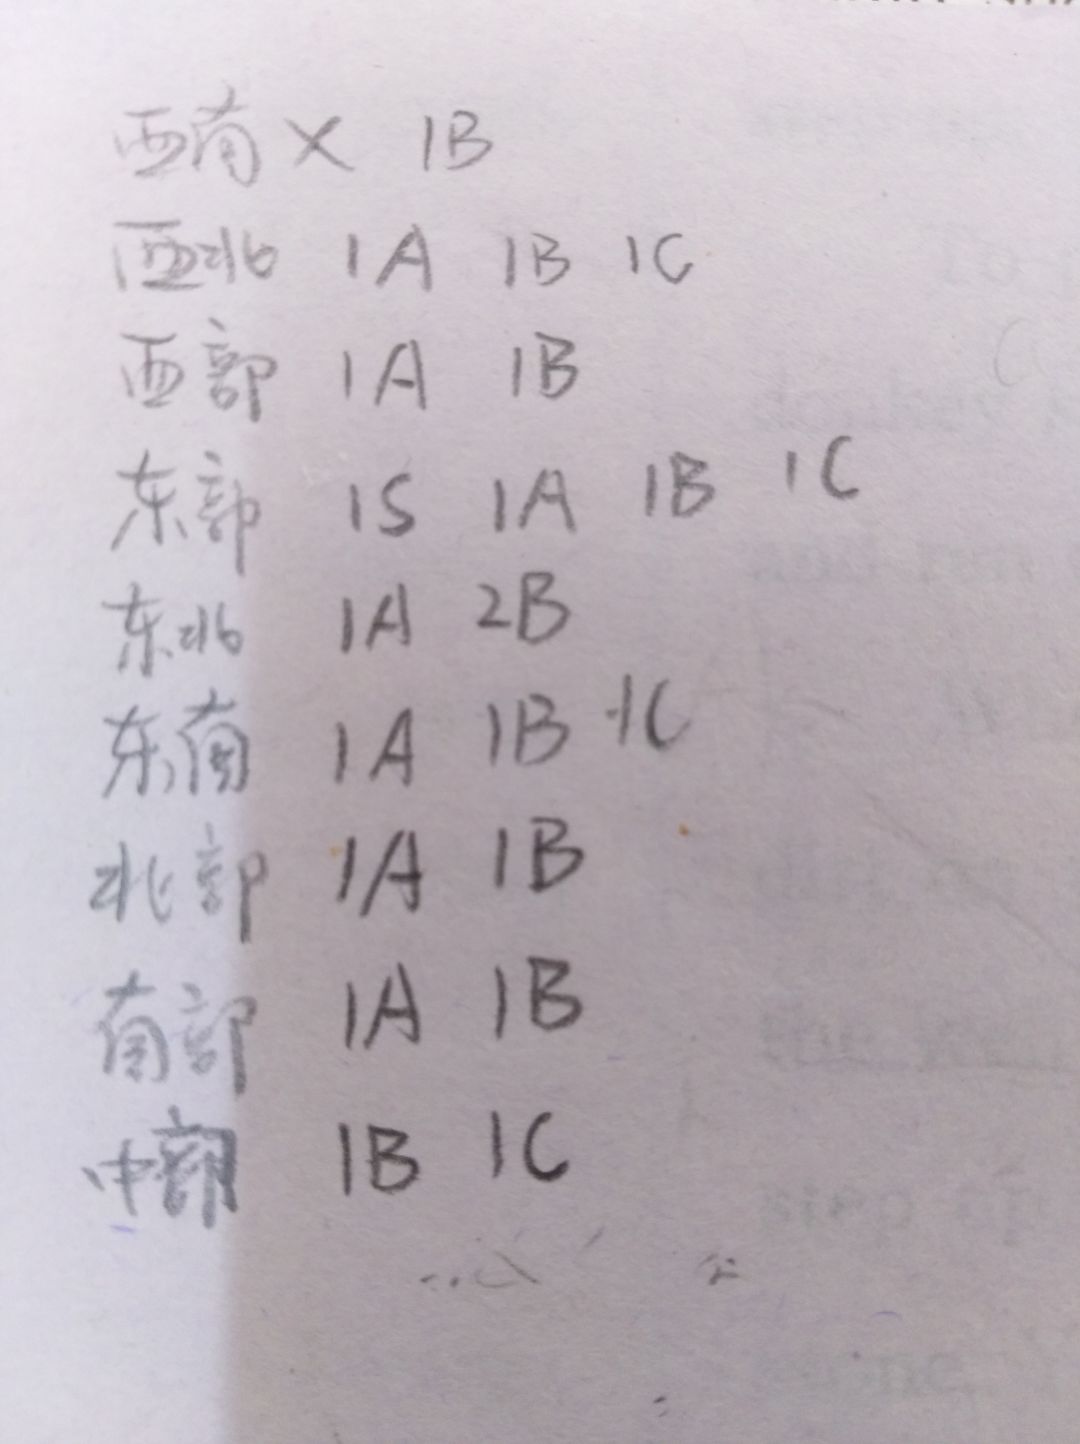 西南 × 1B
西北 1A 1B 1C
西部 1A 1B
东部 1S 1A 1B 1C
东北 1A 2B
东南 1A 1B 1C
北部 1A 1B
南部 1A 1B
中部 1B 1C